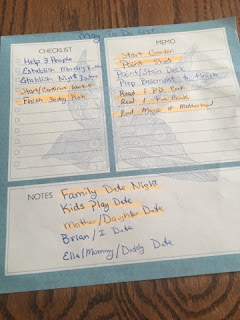 May To Do List
CHECKLIST
Help 3 People
Establish Morning Routine
Establish Night Routine
Start/Continue Workout
Finish 30 day
MEMO
Start Garden
Paint Shed
Paint/Stain Deck
Prep Basement to Finish
Read 1 P.D. Book
Read 1 Fun Book
Read Magic of Motherhood
NOTES
Family Date Night
Kids Play Date
Mother/Daughter Date
Brian/I Date
Ella/Mommy/Daddy Date